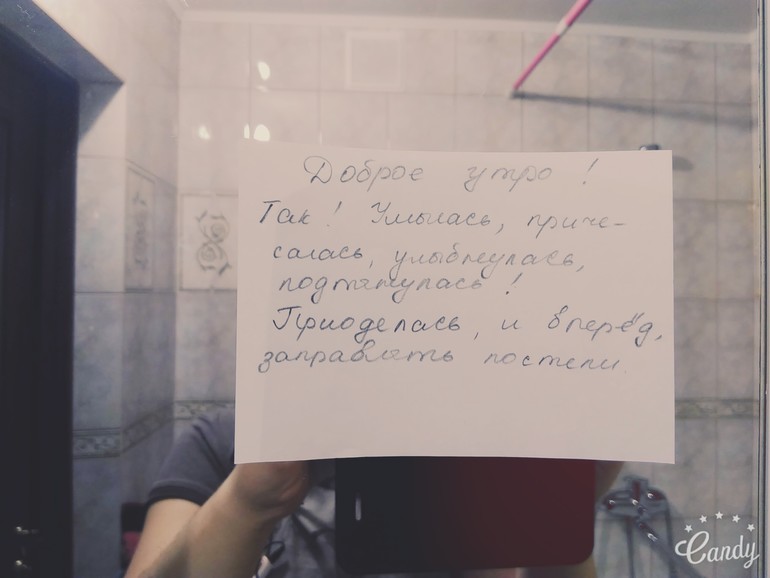 Доброе утро!
Так! Умылась, приче-
салась, улыбнулась,
подтянулась!
Приоделась, и вперёд,
заправлять постели.
Candy